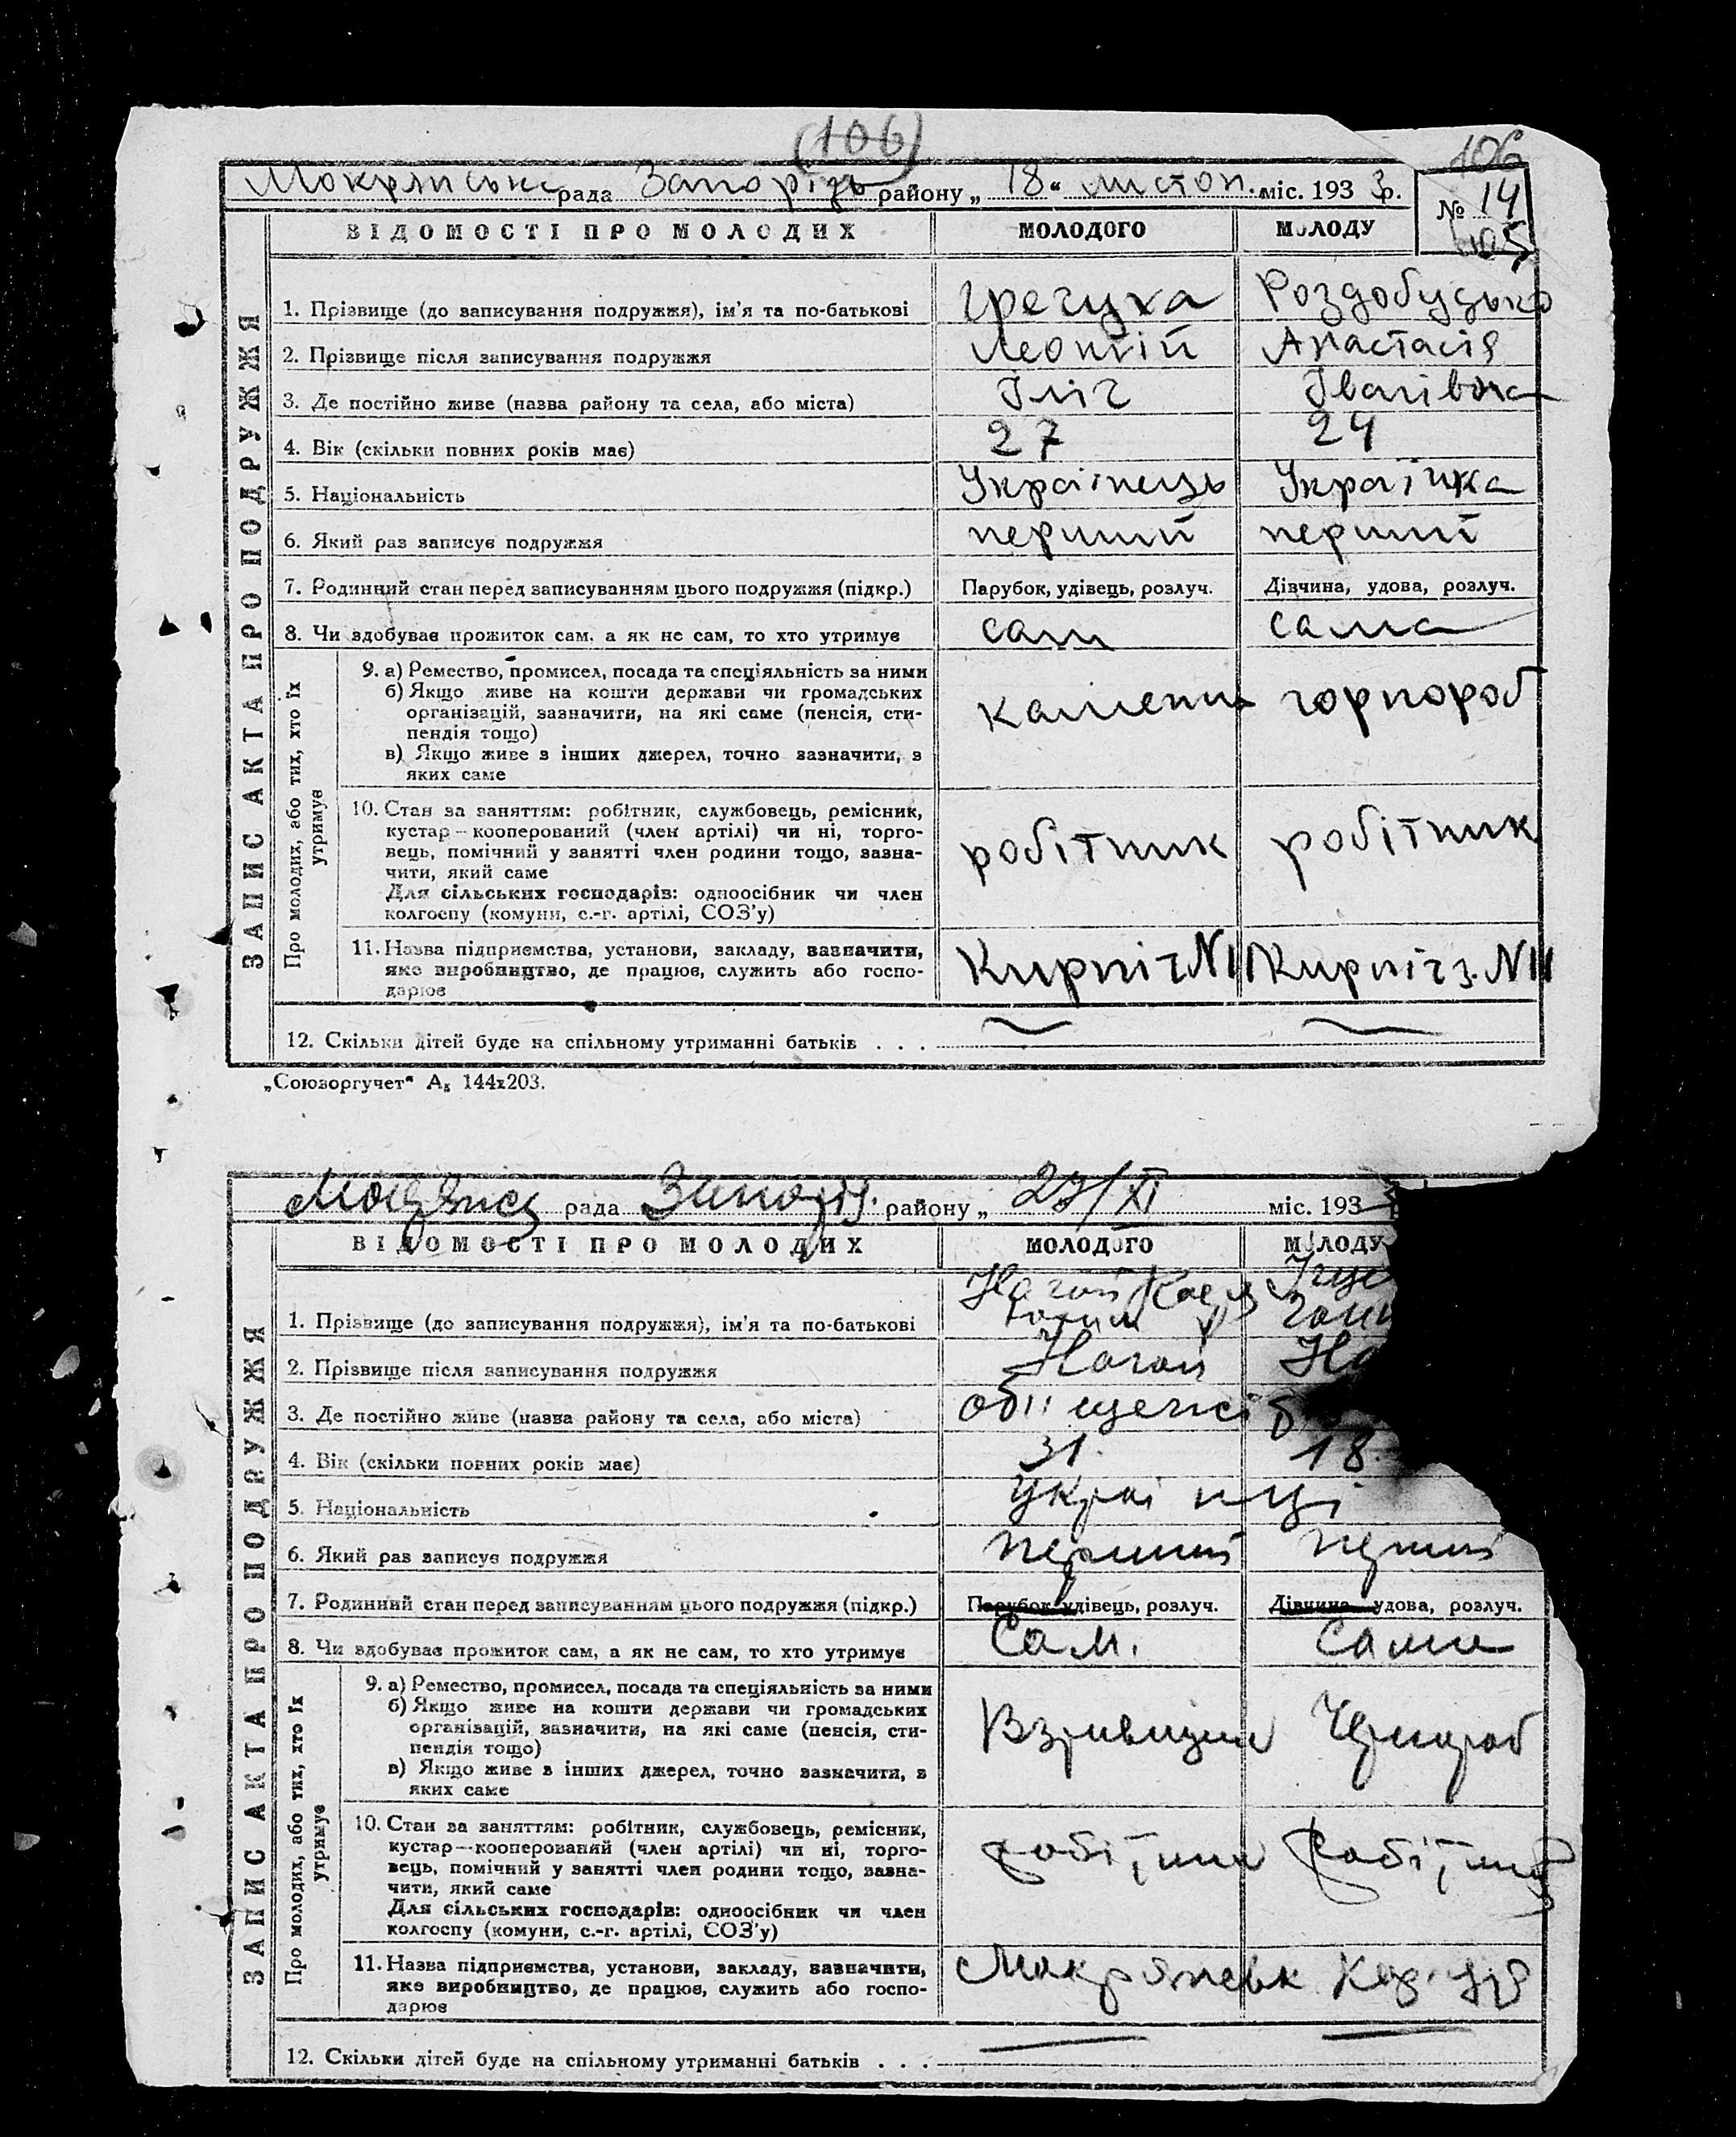 (106)
106
Мокрянська рада Запорізь району „ 18 “ листоп. міс. 193 3 р.
№ 14
105
ВІДОМОСТІ ПРО МОЛОДИХ МОЛОДОГО МОЛОДУ
ЗАПИС АКТА ПРО ПОДРУЖЖЯ
1. Прізвище (до записування подружжя), ім'я та по-батькові Гречуха Роздобудько
2. Прізвище після записування подружжя Леонтій Анастасія
3. Де постійно живе (назва району та села, або міста) Ілiч Іванівна
4. Вік (скільки повних років має) 27 24
5. Національність Українець Українка
6. Який раз записує подружжя перший перший
7. Родинний стан перед записуванням цього подружжя (підкр.) Парубок, удівець, розлуч. Дівчина, удова, розлуч.
8. Чи здобуває прожиток сам, а як не сам, то хто утримує сам сама
Про молодих, або тих, хто їх утримує
9. а) Ремество, промисел, посада та спеціяльність за ними
б) Якщо живе на кошти держави чи громадських
організацій, зазначити, на які саме (пенсія, сти-
пендія тощо)
в) Якщо живе з інших джерел, точно зазначити, з
яких саме
каменщ чорнороб
10. Стан за заняттям: робітник, службовець, ремісник,
кустар—кооперований (член артілі) чи ні, торго-
вець, помічний у занятті член родини тощо, зазна-
чити, який саме
Для сільських господарів: одноосібник чи член
колгоспу (комуни, с.-г. артілі, СОЗ'у)
робітник робітник
11. Назва підприємства, установи, закладу, зазначити,
яке виробництво, де працює, служить або госпо-
дарює
Кирпіч. Кирпіч з.
12. Скільки дітей буде на спільному утриманні батьків . . .
„Союзоргучет“ А₅ 144х203.
рада Запоріз. району „ 23/XI міс. 193 3
ВІДОМОСТІ ПРО МОЛОДИХ МОЛОДОГО МОЛОДУ
ЗАПИС АКТА ПРО ПОДРУЖЖЯ
1. Прізвище (до записування подружжя), ім'я та по-батькові Нагай
2. Прізвище після записування подружжя Нагай На
3. Де постійно живе (назва району та села, або міста)
4. Вік (скільки повних років має) 31. 18.
5. Національність українці
6. Який раз записує подружжя перший перший
7. Родинний стан перед записуванням цього подружжя (підкр.) Парубок, удівець, розлуч. Дівчина, удова, розлуч.
8. Чи здобуває прожиток сам, а як не сам, то хто утримує Сам. Сама
Про молодих, або тих, хто їх утримує
9. а) Ремество, промисел, посада та спеціяльність за ними
б) Якщо живе на кошти держави чи громадських
організацій, зазначити, на які саме (пенсія, сти-
пендія тощо)
в) Якщо живе з інших джерел, точно зазначити, з
яких саме
Взривщик Чорнороб
10. Стан за заняттям: робітник, службовець, ремісник,
кустар—кооперований (член артілі) чи ні, торго-
вець, помічний у занятті член родини тощо, зазна-
чити, який саме
Для сільських господарів: одноосібник чи член
колгоспу (комуни, с.-г. артілі, СОЗ'у)
робітник робітниц
11. Назва підприємства, установи, закладу, зазначити,
яке виробництво, де працює, служить або госпо-
дарює
Мокрянськ Кар.
12. Скільки дітей буде на спільному утриманні батьків . . .